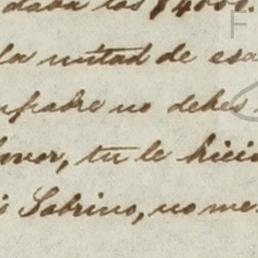 daba los $4000.
la mitad de esa
padre no debes
honor, tu le hicis
Sabrino, no me